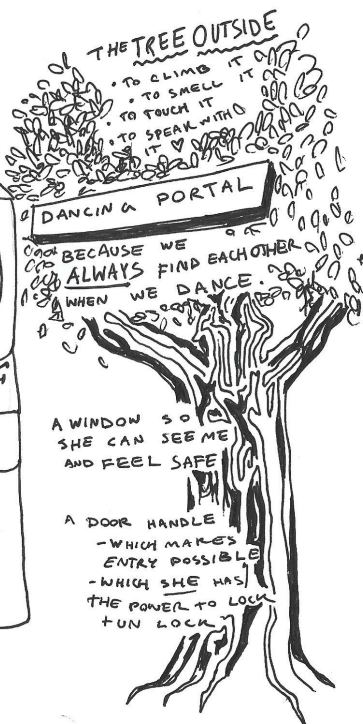 THE TREE OUTSIDE
• TO CLIMB IT
• TO SMELL IT
• TO TOUCH IT
• TO SPEAK WITH
IT ♡
DANCING PORTAL
BECAUSE WE
ALWAYS FIND EACHOTHER
WHEN WE DANCE.
A WINDOW SO
SHE CAN SEE ME
AND FEEL SAFE
A DOOR HANDLE
-WHICH MAKES
ENTRY POSSIBLE
-WHICH SHE HAS
THE POWER TO LOCK
+ UN LOCK